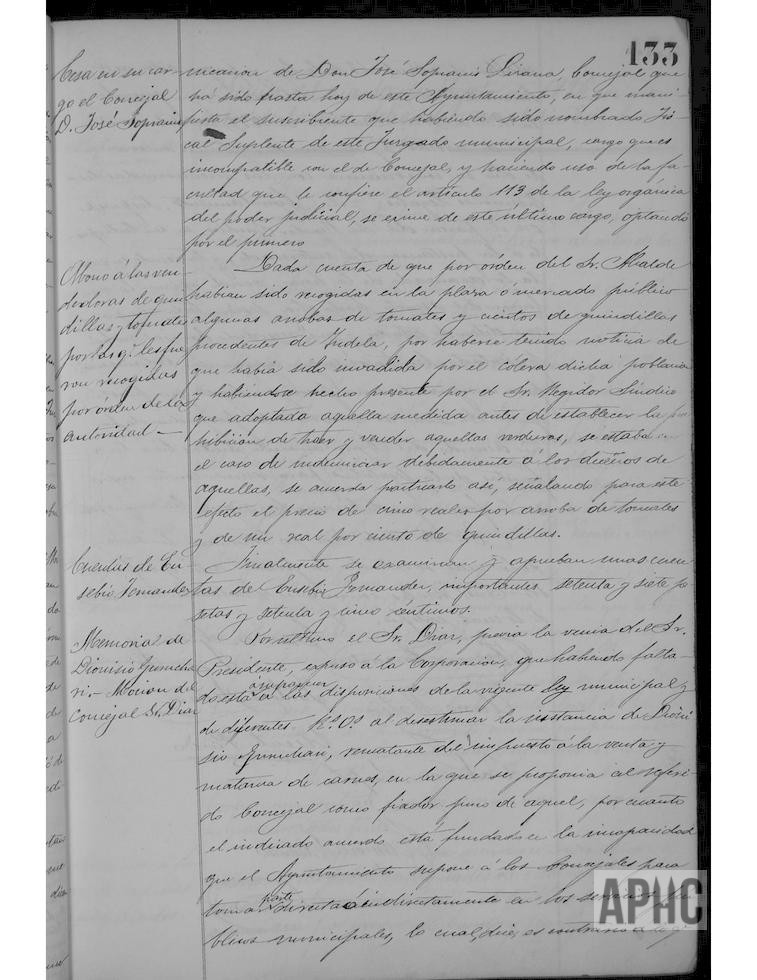 133
Cesa en su car-
go el Concejal
D. José Sopranis
nicacion de Don José Sopranis Lizana, Concejal que
ha sido hasta hoy de este Ayuntamiento, en que mani-
fiesta el suscribiente que habiendo sido nombrado Fis-
cal Suplente de este Juzgado municipal, cargo que es
incompatible con el de Concejal, y haciendo uso de la fa-
cultad que le confiere el artículo 113 de la ley orgánica
del poder judicial, se exime de este último cargo, optando
por el primero
Abono á las ven-
dedoras de guin-
dillas y tomates
por las q. les fue-
ron recogidas
por órden de la
autoridad —
Dada cuenta de que por órden del Sr. Alcalde
habian sido recogidas en la plaza ó mercado público
algunas arrobas de tomates y cientos de guindillas
procedentes de Tudela, por haberse tenido noticia de
que habia sido invadida por el cólera dicha poblacion
y habiendose hecho presente por el Sr. Regidor Síndico
que adoptada aquella medida antes de establecer la pro-
hibicion de traer y vender aquellas verduras, se estaba en
el caso de indemnizar debidamente á los dueños de
aquellas, se acuerda practicarlo asi, señalando para este
efecto el precio de cinco reales por arroba de tomates
y de un real por ciento de guindillas.
Cuentas de Eu-
sebio Fernandez
Finalmente se examinan y aprueban unas cuen-
tas de Eusebio Fernandez, importantes setenta y siete pe-
setas y setenta y cinco centimos.
Memorial de
Dionisio
Mocion del
Concejal Sr. Diaz
Por último el Sr. Diaz, previa la venia del Sr.
Presidente, expuso á la Corporacion, que habiendo falta-
do esta á las disposiciones de la vigente ley municipal y
de diferentes R.s O.s al desestimar la instancia de Dioni-
sio rematante del impuesto á la venta y
matanza de carnes, en la que se proponia al referi-
do Concejal como fiador suyo de aquel, por cuanto
el indicado acuerdo está fundado en la incapacidad
que el Ayuntamiento supone á los Concejales para
tomar parte directa ó indirectamente en los servicios pú-
blicos municipales, lo cual, dice, es contrario á
APHC